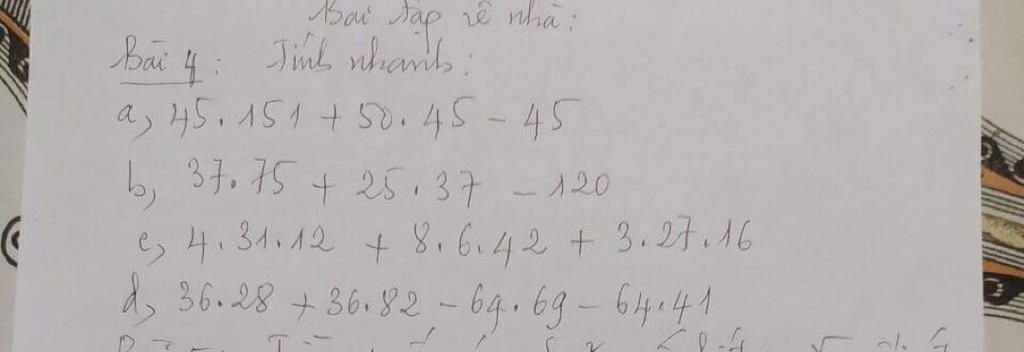 Bài tập về nhà:
Bài 4: Tính nhanh:
a, 45.151 + 50.45 - 45
b, 37.75 + 25.37 - 120
c, 4.31.12 + 8.6.42 + 3.27.16
d, 36.28 + 36.82 - 64.69 - 64.41